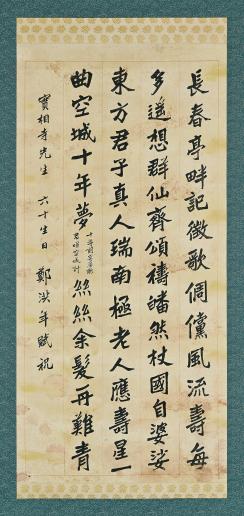 長春亭畔記徵歌倜儻風流壽每
多遙想群仙齊頌禱皤然杖國自婆娑
東方君子真人瑞南極老人應壽星一
曲空城十年夢絲絲余髮再難青
寶相寺先生 六十生日 鄭洪年賦祝